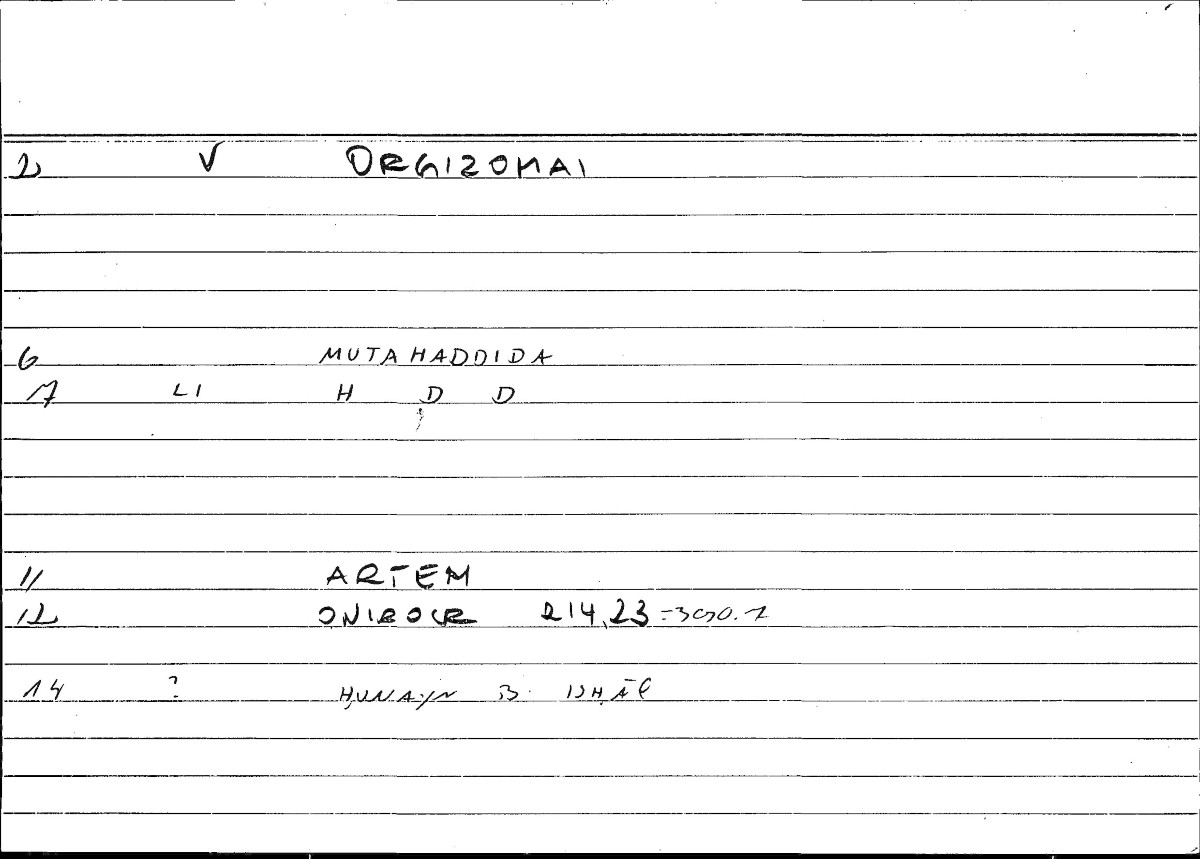 2 V ORGIZOMAI
6 MUTAHADDIDA
7 LI H D D
11 ARTEM
12 ONIROCR 214,23
14 ? ḤUNAYN B. ISḤĀQ